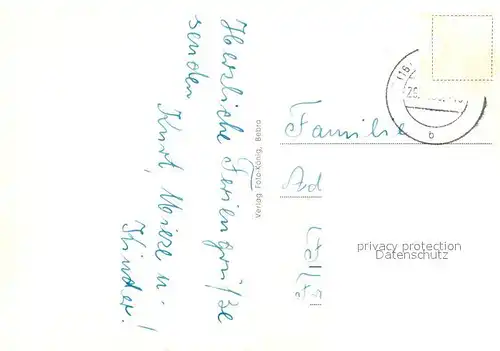 Herzliche Feriengrüße
senden
Kurt, Mieze u.
Kinder!
Verlag Foto-König, Bebra
(16
26.
b
Familie
Ad
privacy protection
Datenschutz